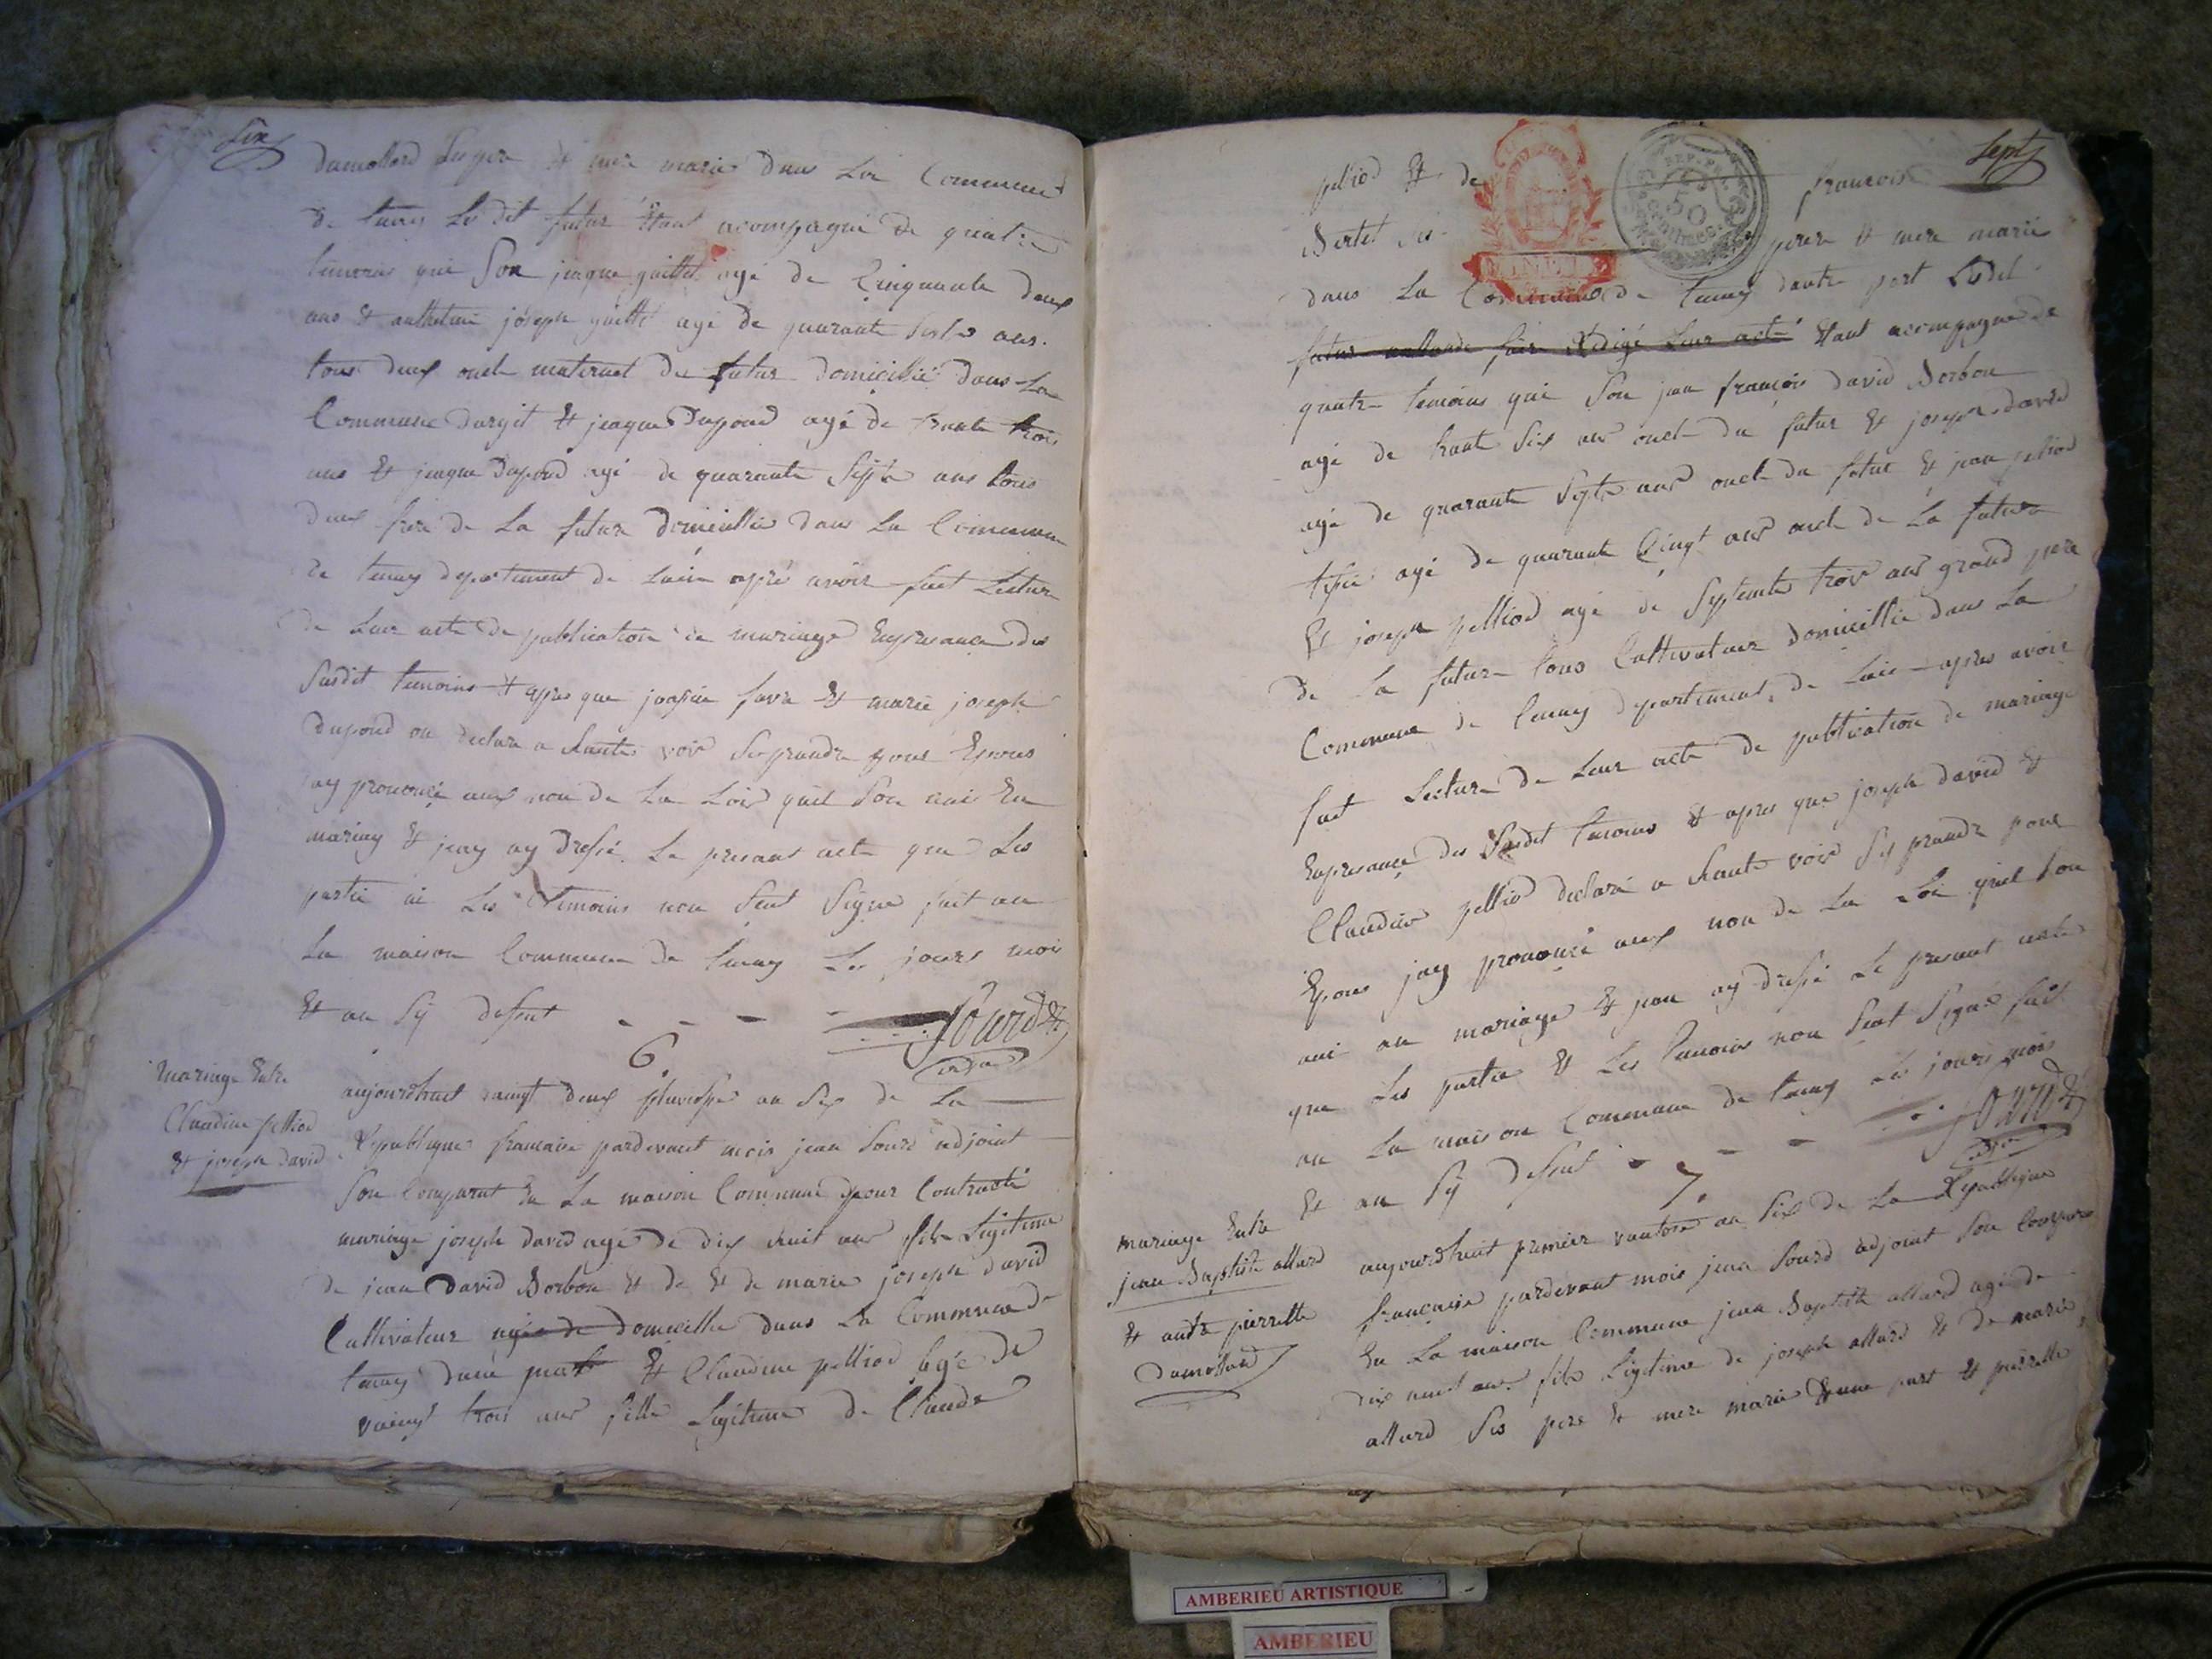 Six
Damollard Ses pere & mere marié dans La Commune
de tenay Le dit futur Etant acompagné de quatre
temoins qui Son jaque guillet agé de Cinquante deux
ans & anthelme joseph guillet agé de quarante Sept ans
tous deux oncle maternel du futur domicillié dans La
Commune dargit & jaque Dupond agé de trante trois
ans & jaque Dupond agé de quarante Septe ans tous
deux frere de La future domicillié dans La Commune
de tenay departement de Lain apré avoir fait Lecture
de Leur acte de publication de mariage Enpresance des
Susdit temoins & apres que favre & marie joseph
dupond on declare a haute voix Se prandre pour Epous
jay prononcé aux non de La Loix quil Son uni En
mariag & jeay ay dressé Le presant acte que Les
partie ni Les temoins non Seut Signe fait au
La maison Commune de tenay Les jours mois
& an Sy dessut - - - Sourd
adjoint
6.
mariage Entre
Claudine pelliod
& joseph David
aujourdhuit vaingt deux pluviose an Six de La
Republique francaise pardevant mois jean Sourd adjoint
Son Comparut En La maison Commune pour Contracté
mariage joseph david agé de dix huit ans fils Legitime
de jean David Borbon & de & de marie joseph david
Cultivateur agée de domicille dans La Commune de
tenay dune part & Claudine pelliod agé de
vaingt trois ans fille Legitime de Claude
Sept
pelliod & de francoise
Bertet Ses pere & mere marié
dans La Commune de tenay dautre part Ledit
futur Rédigé Leur acté Etant acompagné de
quatre temoins qui Son jean françois david Borbon
agé de trante Six ans oncle du futur & joseph david
agé de quarante Septe ans oncle du futur & jean pelliod
agé de quarante Cinq ans oncle de La future
& joseph pelliod agé de Septante trois ans grand pere
de La future tous Cultivateur domicillié dans La
Commune de tenay departement de Lain apres avoir
fait Lecture de Leur acte de publication de mariage
Enpresance des Susdit temoins & apres que joseph david &
Claudine pelliod declaré a haute voix Se prandre pour
Epous jay prononcé aux non de La Loi quil Son
uni an mariage & jean ay dressé Le presant acte
que Les partie & Les temoins non Seut Signé fait
an La maison Commune de tenay Les jours mois
& an Sy dessut - - - Sourd
adjoint
7.
mariage Entre
jean Baptiste allard
& antre pierrette
Damollard
aujourdhuit premier vantose an Six de La Republique
française pardevant mois jean Sourd adjoint Son Compare
En La maison Commune jean Baptiste allard agé de
dix neuf ans fils Legitime de joseph allard & de marie
allard Ses pere & mere marié dune part & pierrette
AMBERIEU ARTISTIQUE
AMBERIEU